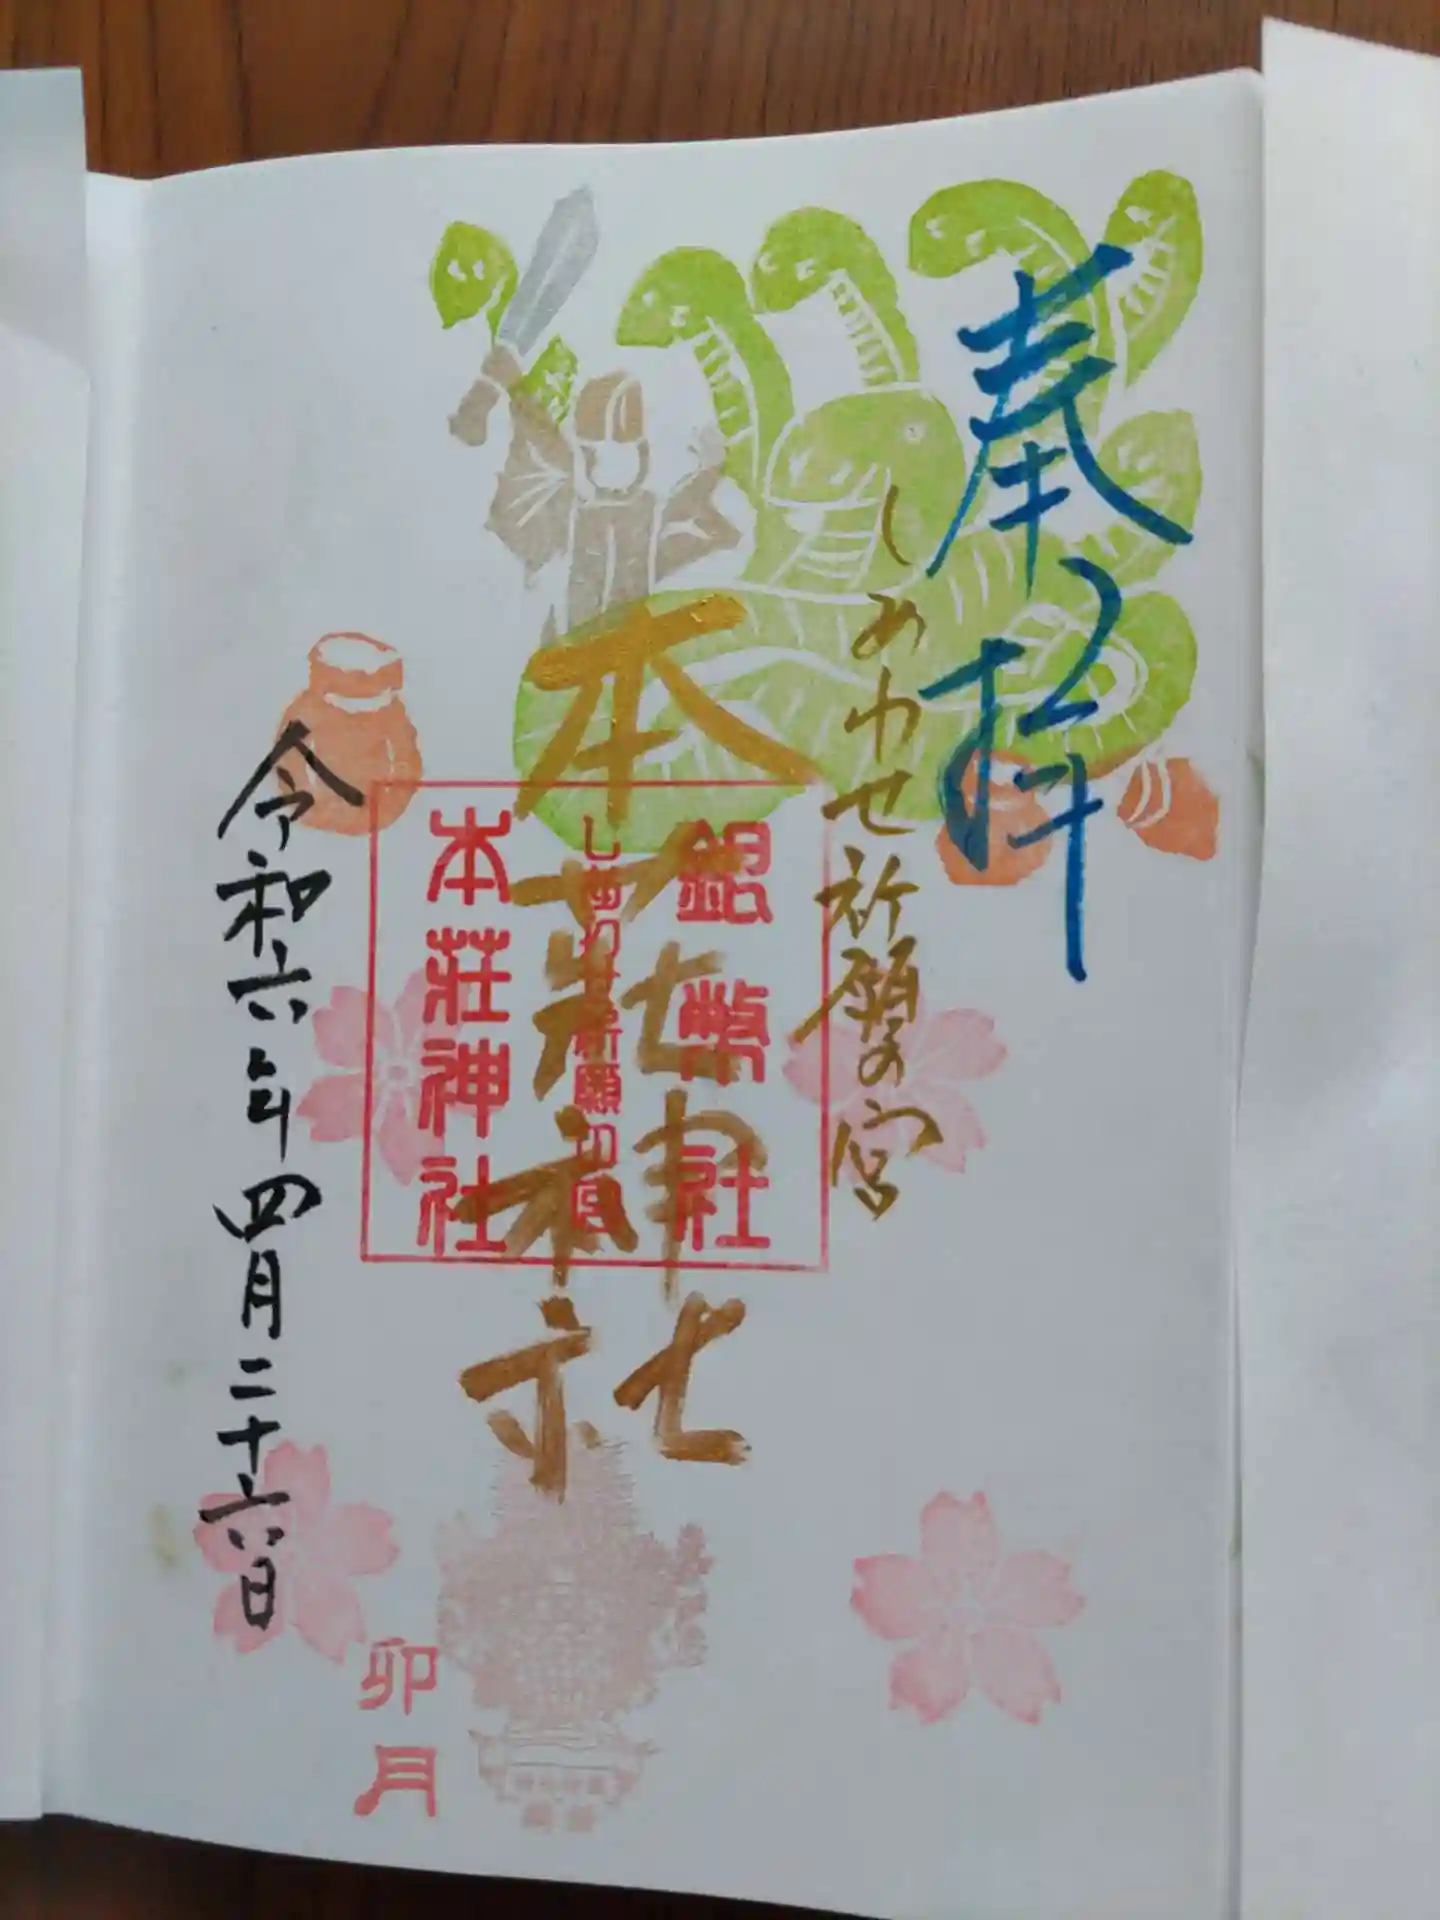 奉拝
しあわせ祈願の宮
本荘神社
銀幣社
しあわせ祈願の宮
本荘神社
令和六年四月二十六日
卯月